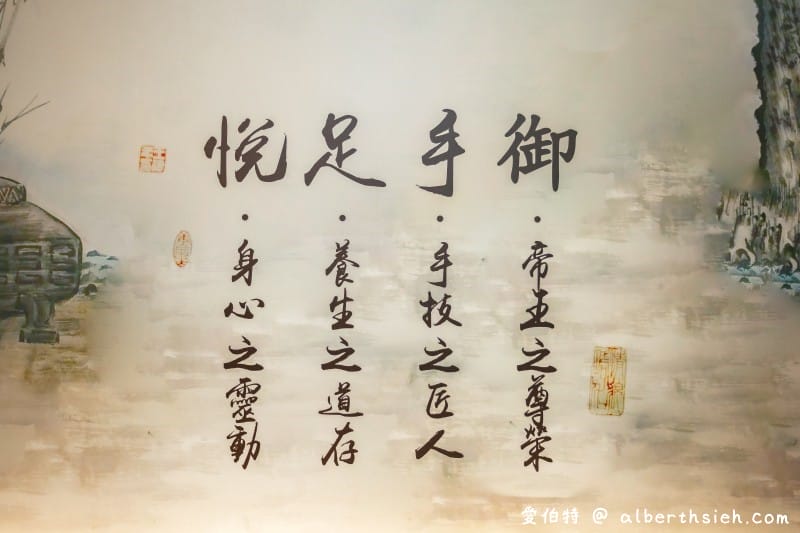 御・帝王之尊榮
手・手技之匠人
足・養生之道存
悅・身心之靈動
愛伯特 @ alberthsieh.com